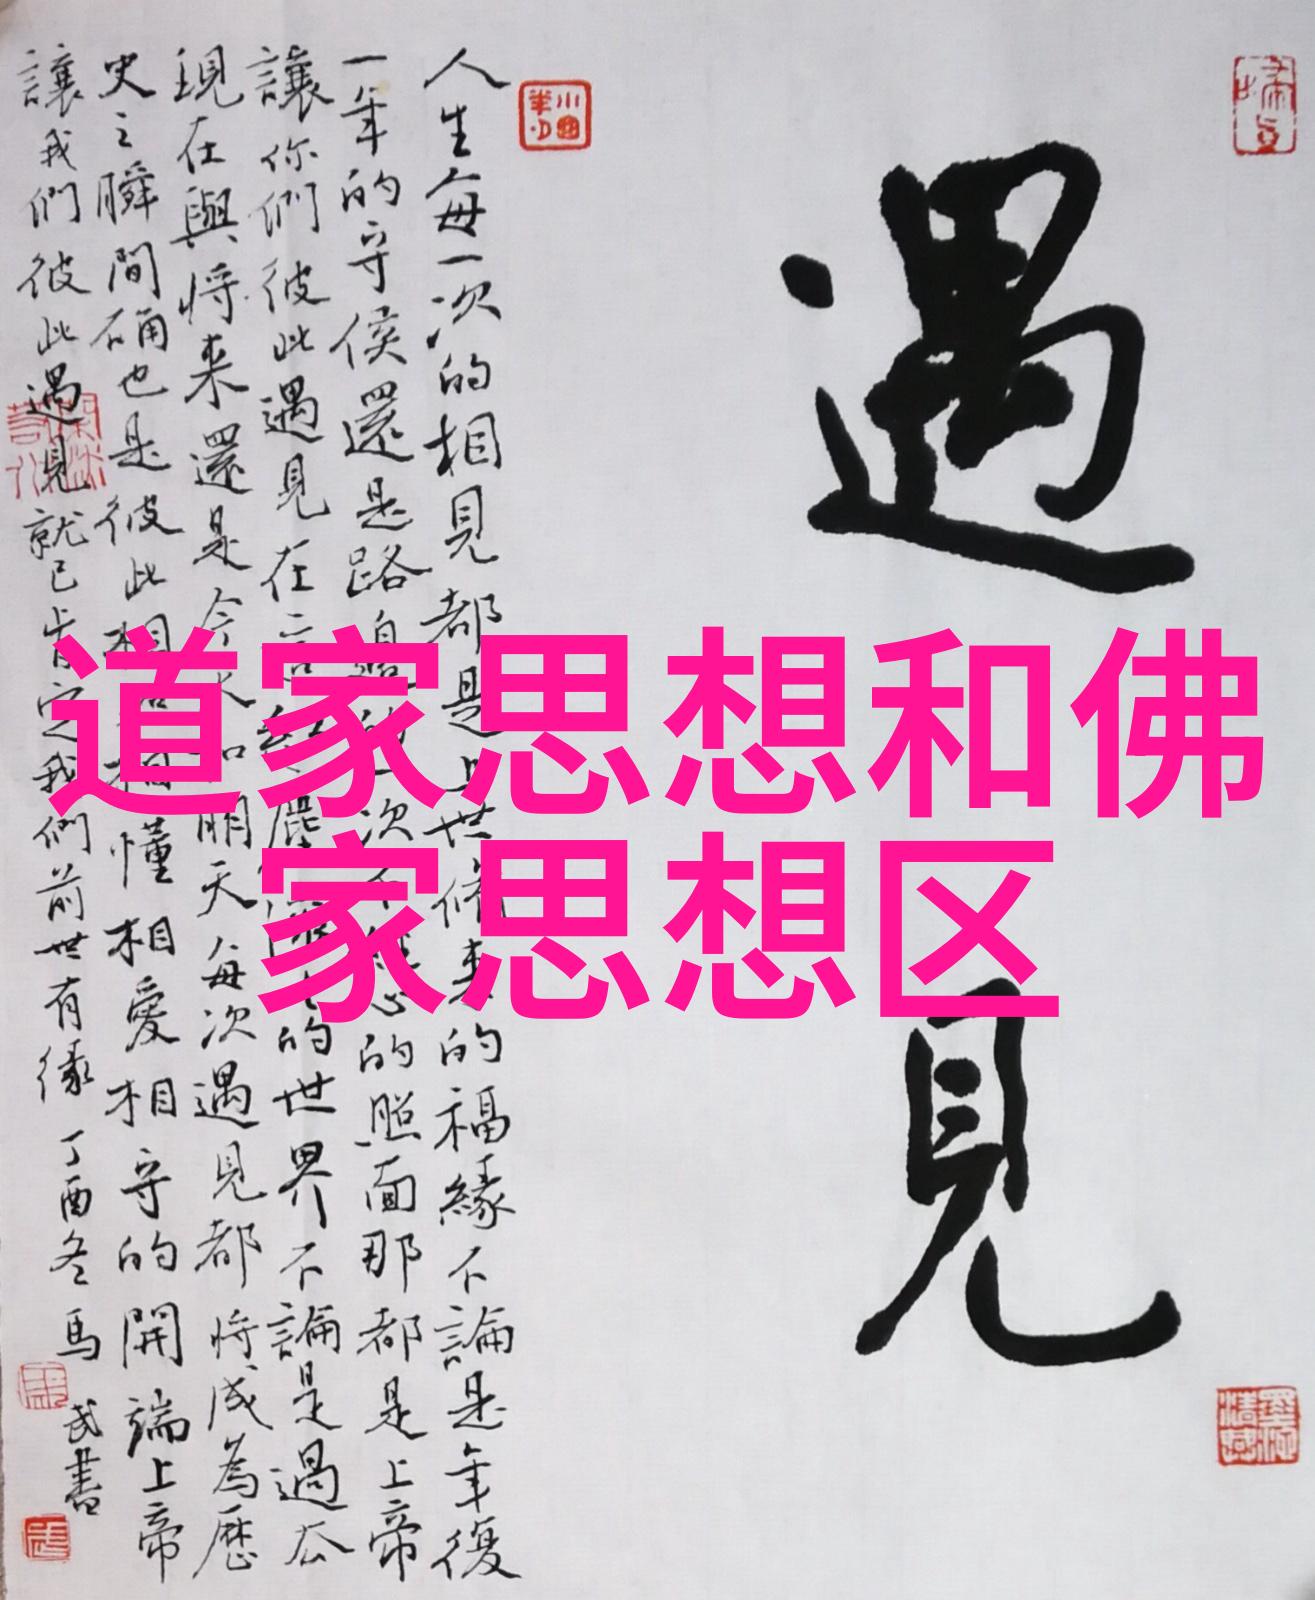 道家思想和佛
家思想区
遇見
人生每一次的相見都是上世修来的福緣不論是年復
一年的守侯還是路 次不经心的照面那都是上帝
讓你們彼此遇見在 的世界不論是過去
現在與將来還是今天和明天每次遇見都將成為歷
史之瞬間確也是彼此相 相懂相愛相守的開端上帝
讓我們彼此遇見就已肯定我們前世有缘 丁酉冬馬
武書